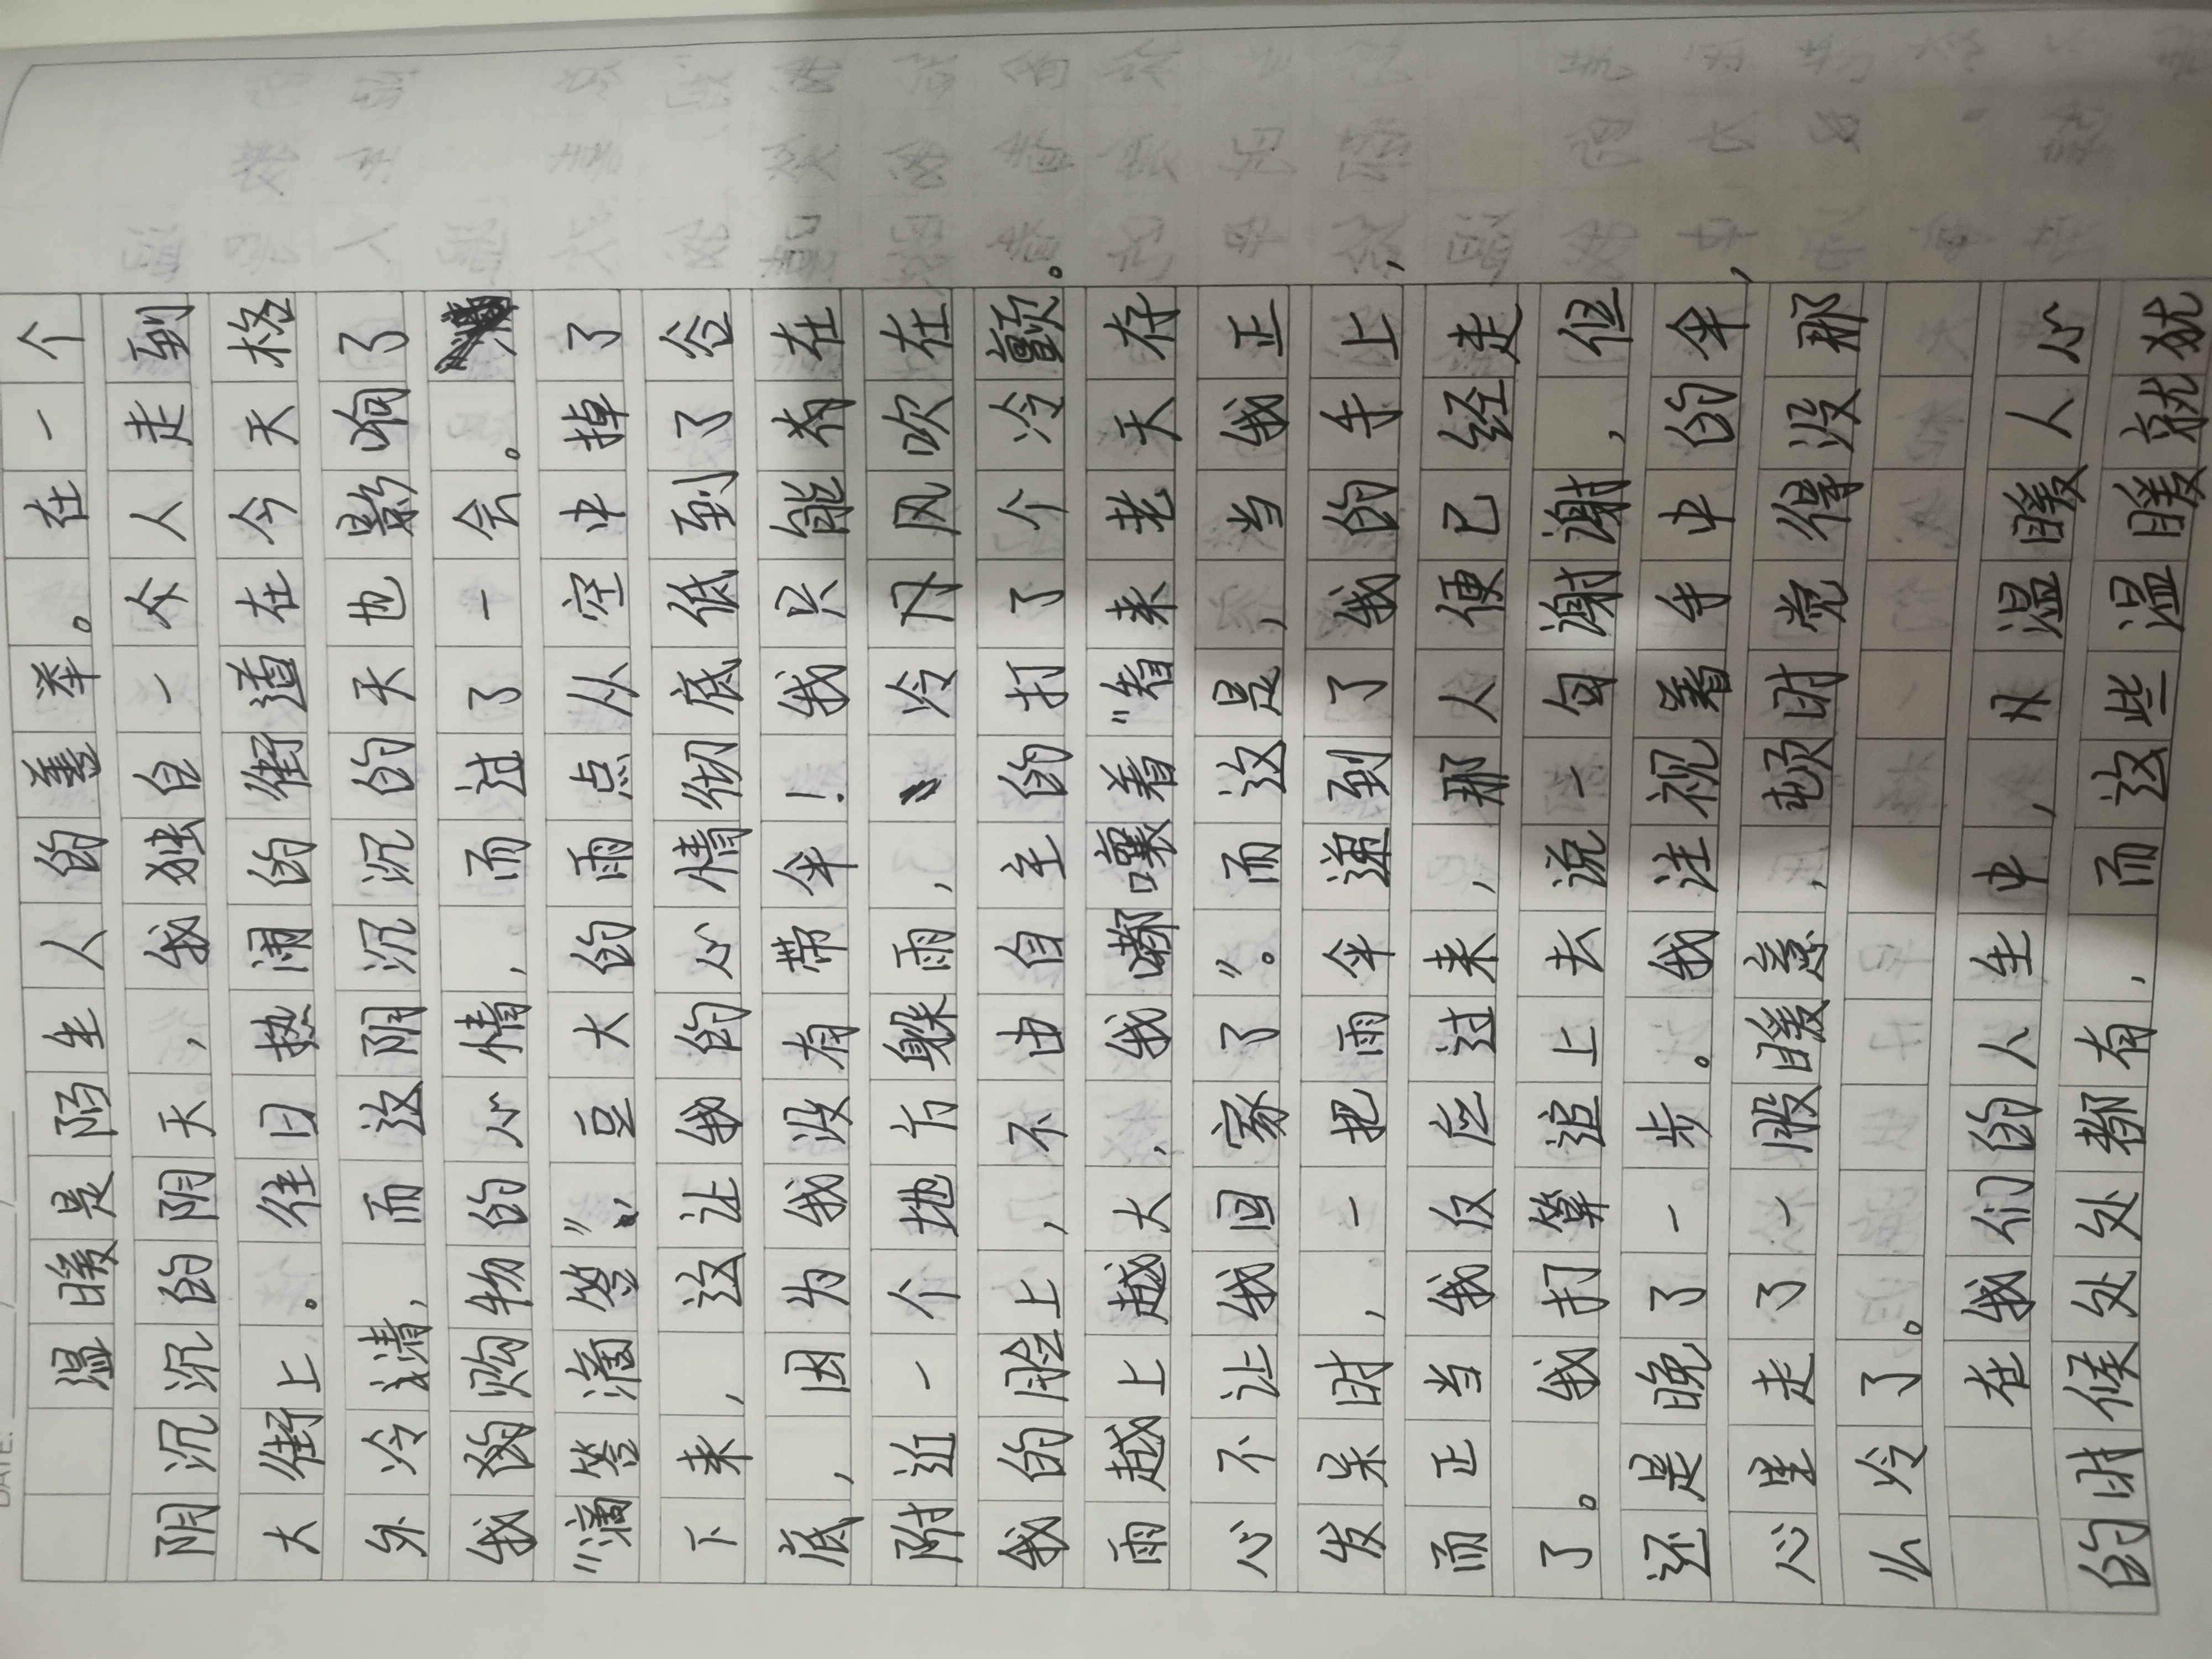 温暖是陌生人的善举。在一个
阴沉沉的阴天,我独自一个人走到
大街上。往日热闹的街道在今天格
外冷清,而这阴沉沉的天也影响了
我的购物的心情,而过了一会。
“滴答滴答”,豆大的雨点从空中掉了
下来,这让我的心情彻底低到了谷
底,因为我没有带伞!我只能有在
附近一个地方躲雨,冷风吹在
我的脸上,不由自主的打了个冷颤。
雨越上越大,我嘟嚷着“看来老天存
心不让我回家了”。而这是,当我正
发呆时,一把雨伞递到了我的手上,
而正当我反应过来,那人便已经走
了。我打算追上去说一句谢谢,但
还是晚了一步。我注视着手中的伞,
心里走了一股暖意,顿时觉得没那
么冷了。
在我们的人生中,又温暖人心
的时候处处都有,而这些温暖就犹